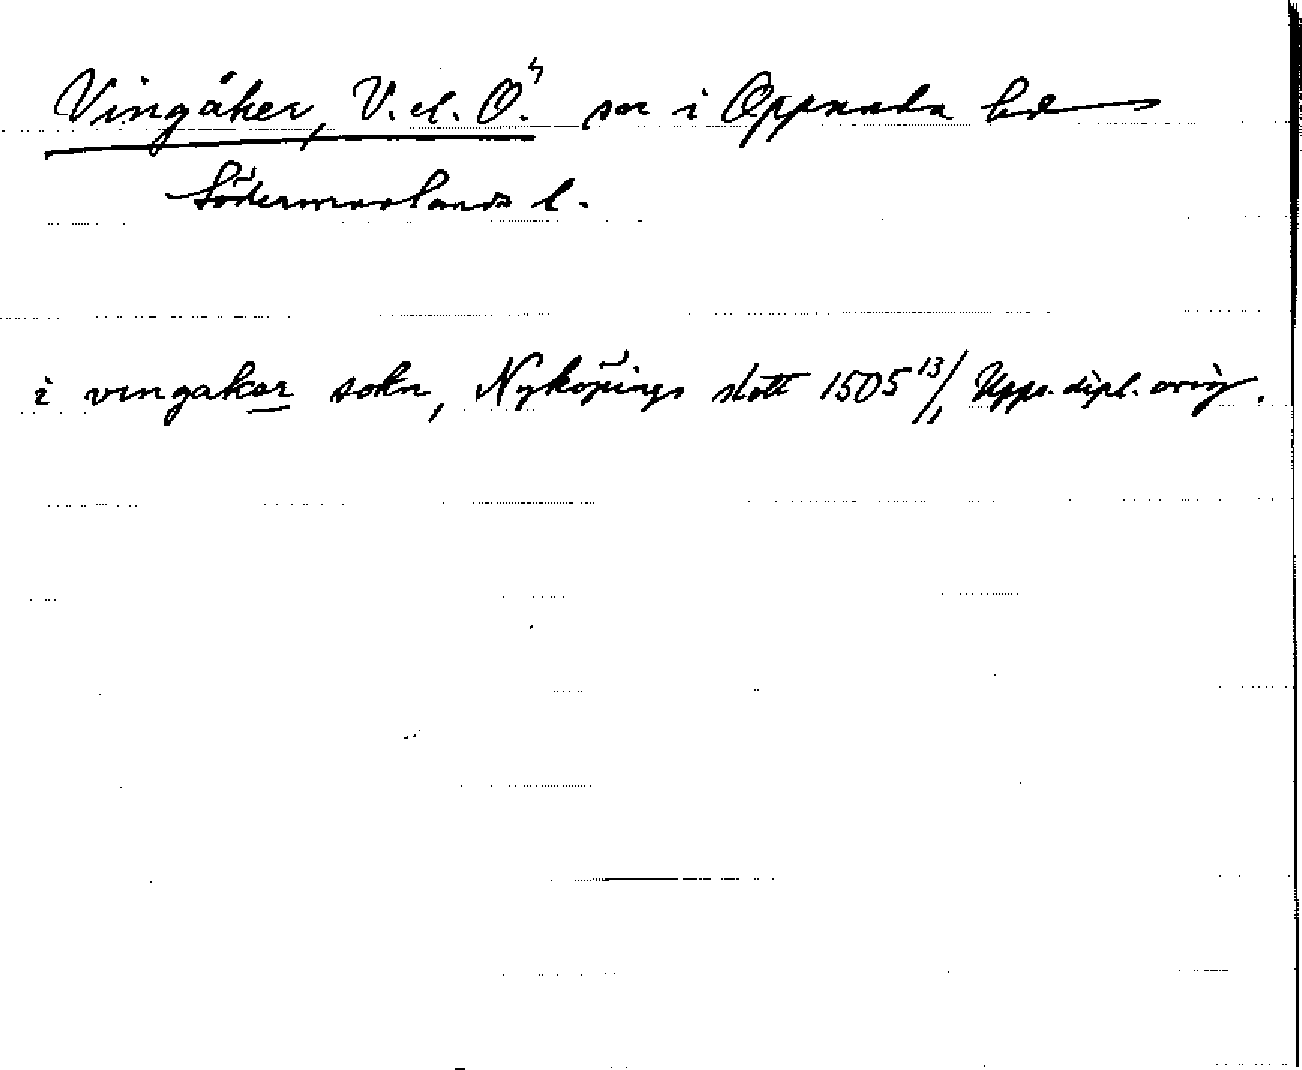 Vingåker, V. el. Ö. snr i Oppunda hd
Södermanlands l.
i vingakar sokn, Nyköpings slott 1505 13/1 Upps. dipl. orig.